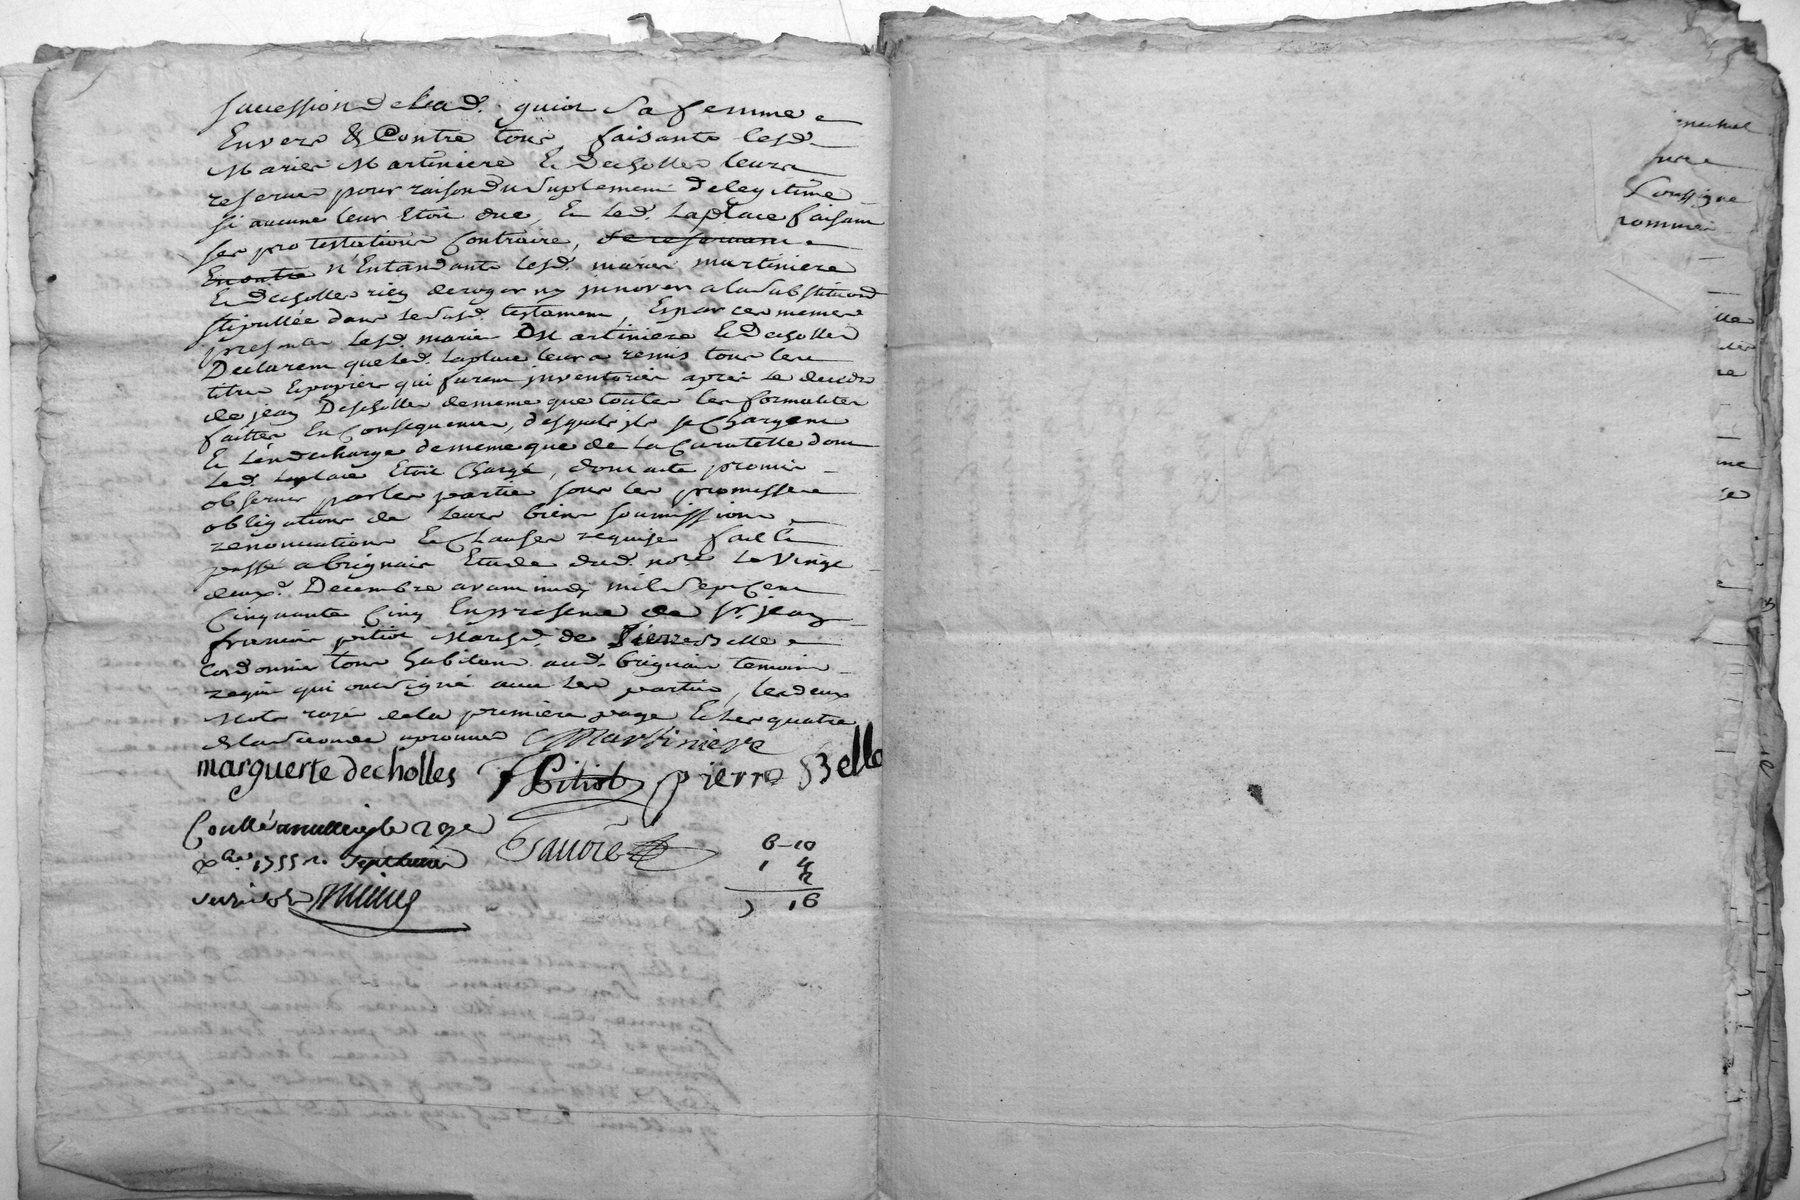 succession de lad. guiot sa femme
Envers & Contre tous, faisants lesd.
Mariés Martiniere & Decholles leurs
reserves pour raison du suplement de legitime
si aucune leur Etoit due, & led. Laplace faisant
ses protestations Contraire, se reservant
En outre n'Entandants lesd. mariés martiniere
& decholles rien deroger ny jnnover a la substitution
stipullée dans le susd. testament, Et par ces memes
presentes lesd. mariés Martiniere & Decholles
Declarent que led. Laplace leur a remis tous les
titres & papiers qui furent jnventoriés apres le decés
de jean Decholles de meme que toutes les formalités
faittes En Consequence, desquels jls se Chargent
& L'en decharge de meme que de La Curatelle dont
Led. Laplace Etoit Chargé, dont acte promis
observer par les parties sous les promesses
obligations de Leurs biens soumissions
renonciations & Clauses requises fait &
passé a brignais Etude dud. nore. Le Vingt
deuxe. Decembre avant midy mil sept Cent
Cinquante Cinq En presence de sr. jean
francois pitiot March. de Pierre Belle
Cordonnier tous habitans aud. brignais temoins
requis qui ont signé avec Les parties, les deux
Mots rayé de la premiere page & Les quatre
de la seconde aprouvés Martiniere
marguerte decholles F Pitiot pierre Belle
Conllé a le 29e
xbre. 1755 ro.
6-10
1 4
2
7 16